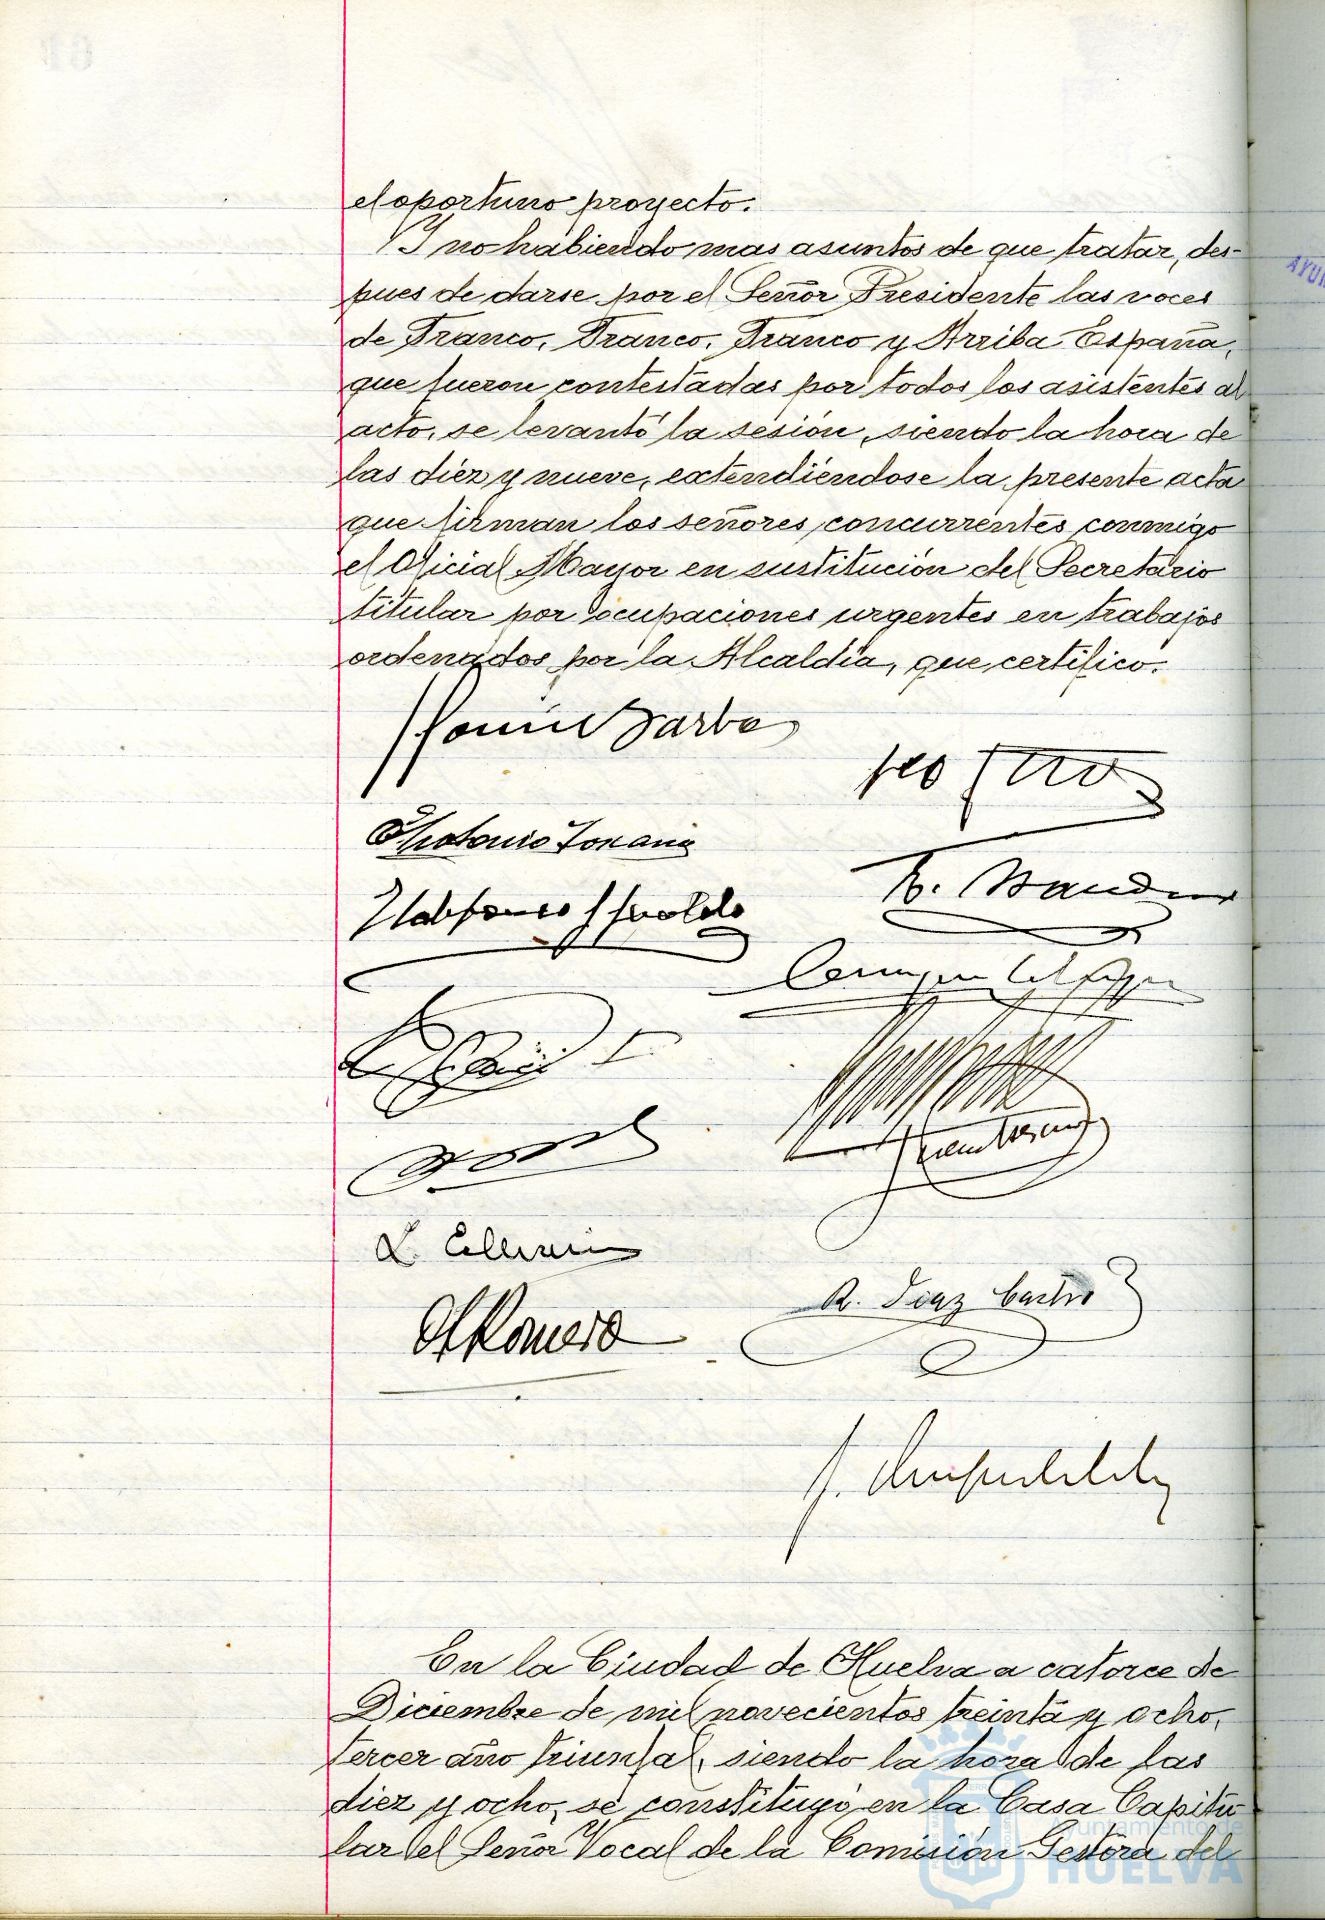 el oportuno proyecto.
Y no habiendo mas asuntos de que tratar, des-
pues de darse por el Señor Presidente las voces
de Franco, Franco, Franco y Arriba España,
que fueron contestadas por todos los asistentes al
acto, se levantó la sesión, siendo la hora de
las diez y nueve, extendiéndose la presente acta
que firman los señores concurrentes conmigo
el Oficial Mayor en sustitución del Secretario
titular por ocupaciones urgentes en trabajos
ordenados por la Alcaldía, que certifico.
Barba
Ildefonso
L.
Romero
R. Diaz Castro
En la Ciudad de Huelva a catorce de
Diciembre de mil novecientos treinta y ocho,
tercer año triunfal, siendo la hora de las
diez y ocho, se constituyó en la Casa Capitu
lar el Señor Vocal de la Comisión Gestora del
Ayuntamiento de
HUELVA